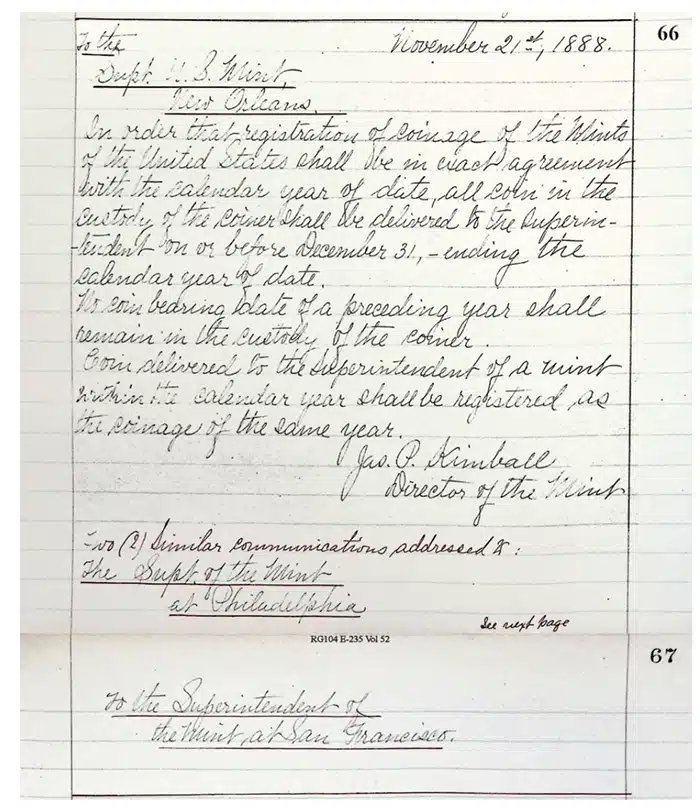 66
November 21st, 1888.
To the
Supt. U. S. Mint,
New Orleans.
In order that registration of coinage of the Mints
of the United States shall be in exact agreement
with the calendar year of date, all coin in the
custody of the coiner shall be delivered to the Superin-
-tendent on or before December 31, - ending the
calendar year of date.
No coin bearing date of a preceding year shall
remain in the custody of the coiner.
Coin delivered to the Superintendent of a mint
within the calendar year shall be registered as
the coinage of the same year.
Jas. P. Kimball
Director of the Mint
Two (2) Similar communications addressed to:
The Supt. of the Mint
at Philadelphia
See next page
RG104 E-235 Vol 52
67
To the Superintendent of
the Mint, at San Francisco.